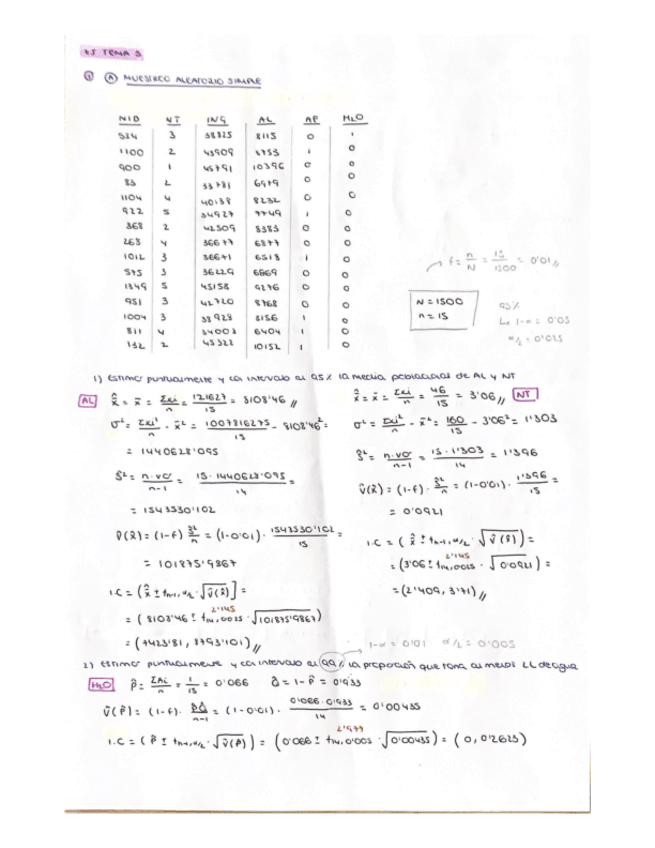 EJ TEMA 3
① Ⓐ MUESTREO ALEATORIO SIMPLE
NID NT ING AL AP H2O
524 3 38325 8115 0 1
1100 2 43909 6753 1 0
900 1 45791 10396 0 0
83 2 33781 6979 0 0
1104 4 40138 8232 0 0
922 5 34927 7749 1 0
368 2 42309 8383 0 0
263 4 36677 6877 0 0
1012 3 36671 6518 1 0
575 3 36229 6869 0 0
1349 5 45158 9276 0 0
951 3 42720 8768 0 0
1004 3 38928 8156 1 0
811 4 34003 6404 1 0
132 2 45322 10152 1 0
f = n/N = 15/1500 = 0'01 //
N = 1500
n = 15
95%
1-α = 0'05
α/2 = 0'025
1) Estimar puntualmente y con intervalo al 95% la media poblacional de AL y NT
AL x̂ = x̄ = Σxi/n = 121627/15 = 8108'46 //
σ² = Σxi²/n - x̄² = 1007816275/15 - 8108'46² =
= 1440628'095
Ŝ² = n·vσ/n-1 = 15·1440628'095/14 =
= 1543530'102
V̂(x̄) = (1-f) Ŝ²/n = (1-0'01)· 1543530'102/15 =
= 101875'9867
I.C = (x̂ ± tn-1, α/2 · √V̂(x̄)) =
2'145
= (8108'46 ± t14, 0'025 · √101875'9867)
= (7423'81, 8793'101) //
x̂ = x̄ = Σxi/n = 46/15 = 3'06 // NT
σ² = Σxi²/n - x̄² = 160/15 - 3'06² = 1'303
Ŝ² = n·vσ/n-1 = 15·1'303/14 = 1'396
V̂(x̄) = (1-f)· Ŝ²/n = (1-0'01)· 1'396/15 =
= 0'0921
I.C = (x̂ ± tn-1, α/2 · √V̂(x̄)) =
2'145
= (3'06 ± t14, 0'025 · √0'0921) =
= (2'409, 3'71) //
1-α = 0'01 α/2 = 0'005
2) Estimar puntualmente y con intervalo al 99% la proporción que toma al menos 2L de agua
H2O P̂ = ΣAi/n = 1/15 = 0'066 Q̂ = 1 - P̂ = 0'933
V̂(P̂) = (1-f)· P̂Q̂/n-1 = (1-0'01)· 0'066·0'933/14 = 0'00435
2'977
I.C = (P̂ ± tn-1, α/2 · √V̂(P̂)) = (0'066 ± t14, 0'005 · √0'00435) = (0, 0'2623)